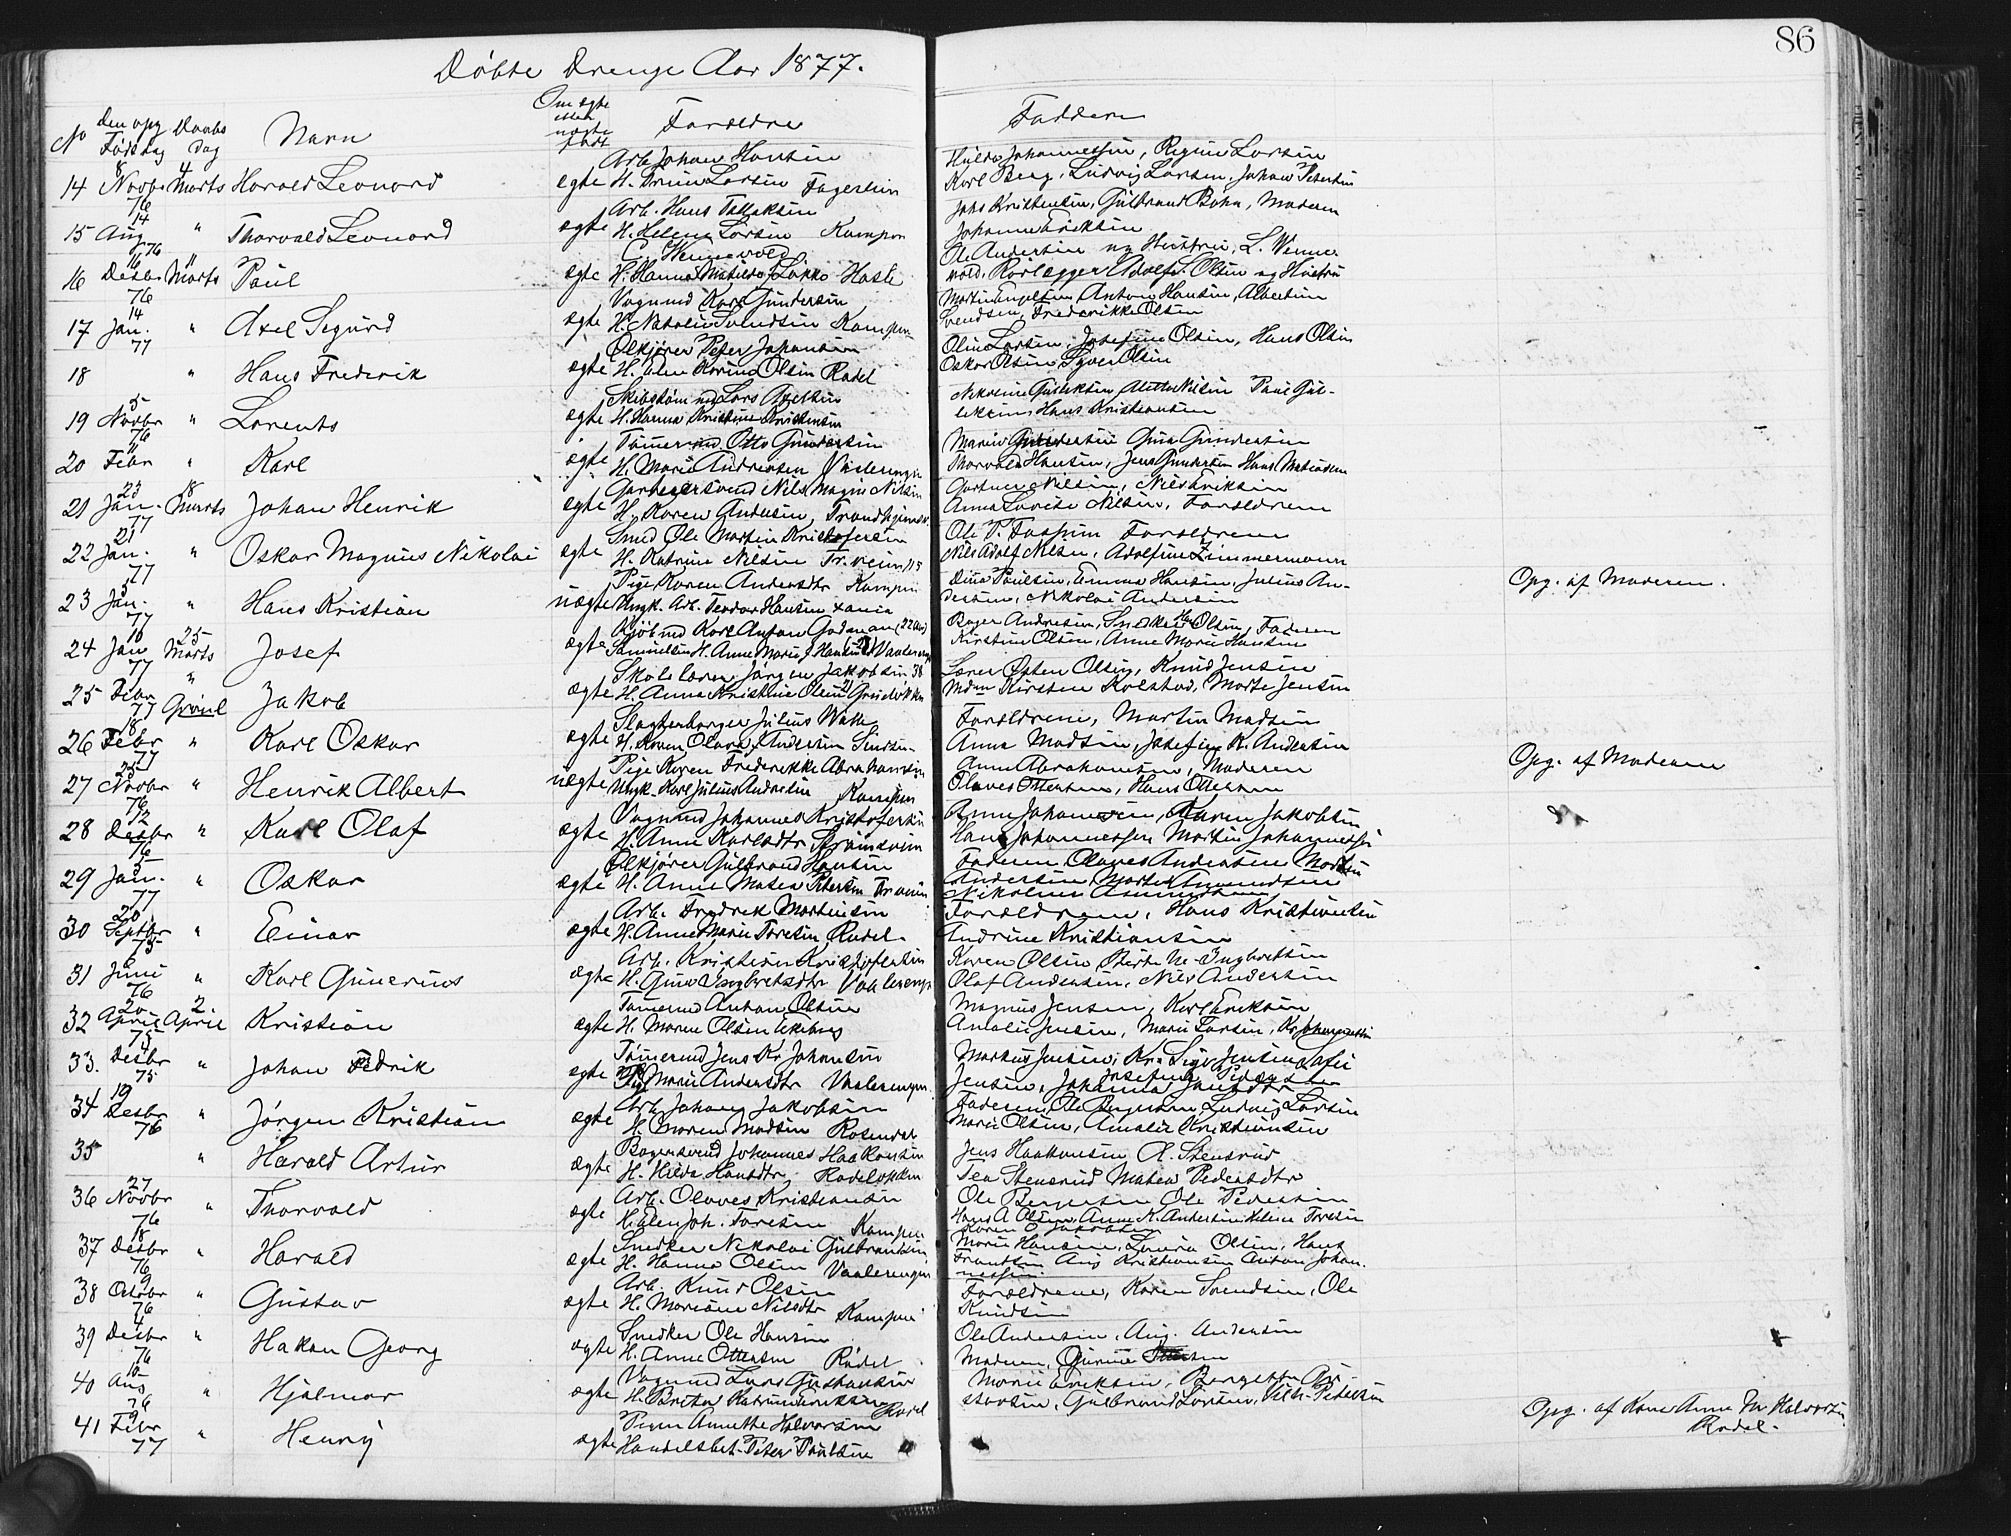 86
Døbte Drenge Aar 1877.
No den opg Fødsdag Daabs dag Navn Om ægte eller uægte født Forældre Faddere
14 8 Novbr 76 4 Marts Harald Leonard ægte Arb. Johan Hansen
H. Larsen Fagerlien
Hulda Johannessen, Regine Larsen
Karl Berg, Ludvig Larsen, Johan Petersen
15 14 Aug 76 " Thorvald Leonard ægte Arb. Hans Tollaksen
H. Helene Larsen Kampen
Johs Kristensen, Gulbrand Bohn, Moderen
Johanne Eriksen
16 16 Desbr 76 11 Marts Paul ægte C. Wennevold
H. Hanna Matilda Løkke Hasle
Ole Andersen og Hustru, L. Wenne-
vold, Rørlægger Adolf S. Olsen og Hustru
17 14 Jan. 77 " Axel Sigurd ægte Vognmd Karl Gundersen
H. Natalie Svendsen Kampen
Martin Engelsen, Anton Hansen, Albertine
Svendsen, Frederikke Olsen
18 " Hans Frederik ægte Ølkjører Peter Johansen
H. Elen Karine Olsen Rodel
Oline Larsen, Josefine Olsen, Hans Olsen
Oskar Olsen, Syver Olsen
19 5 Novbr 76 " Lorents ægte Skibstømmd Lars Axelsen
H. Hanna Kristine Kristensen
Nikoline Gulliksen, Alette Nilsen Paul Gul-
liksen, Hans Kristiansen
20 11 Febr " Karl ægte Tømmermd Otto Gundersen
H. Marie Andersen Vaalerengen
Marie Gundersen Gina Gundersen
Thorvald Hansen, Jens Gundersen Hans Matisen
21 23 Jan. 77 18 Marts Johan Henrik ægte Garversvend Nils Magn. Nilsen
H. Karen Andersen, Trondhjemsv.
Gartner Nilsen, Nils Eriksen
Anna Lovise Nilsen, Forældrene
22 21 Jan. 77 " Oskar Magnus Nikolai ægte Smed Ole Martin Kristofersen
H. Katrine Nilsen Tr.veien 115
Ole P. Fossum Forældrene
Nils Adolf Nilsen, Adolfine Zimmermann
23 5 Jan. 77 " Hans Kristian uægte Pige Karen Andersdtr Kampen
Ungk. Arb. Teodor Hansen Xania
Dina Paulsen, Emma Hansen, Julius An-
dersen, Nikolai Andersen
Opg. af Moderen.
24 10 Jan 77 25 Marts Josef ægte Kjøbmd Karl Anton Godman (22 Aar)
Samuelsen H. Anne Marie Hansen Vaalereng
Bager Andresen, Snedker Olsen, Faderen
Kirstine Olsen, Anne Marie Hansen
25 Febr 77 " Grønl Jakob ægte Skolelærer Jørgen Jakobsen 38
H. Anna Kristine Olsen Grüneløkken
Søren Østen Olsen, Knud Jensen
Mdm Kirsten Kolstad, Marte Jensen
26 18 Febr 77 " Karl Oskar ægte Slagterborger Julius Walle
H. Karen Olava Andersen
Forældrene, Martin Madsen
Anna Madsen, Josefine K. Andersen
27 25 Novbr 76 " Henrik Albert uægte Pige Karen Frederikke Abrahamsen
Ungk. Karl Julius Andresen Kampen
Anne Abrahamsen, Moderen
Olaves Ottersen, Hans Ottersen
Opg. af Moderen
28 12 Desbr 76 " Karl Olaf ægte Vognmd Johannes Kristofersen
H. Anne Karlsdtr Strømsveien
Anne Johansen, Karen Jakobsen
Hans Johannessen Martin Johannessen
29 5 Jan. 77 " Oskar ægte Ølkjører Gulbrand Hansen
H. Anne Matea Petersen Tr.veien
Faderen Olaves Andersen Martin
Andersen, Marte Amundsen
Nikoline Amundsen
30 20 Septbr 75 " Einar ægte Arb. Fredrik Martinsen
H. Anne Marie Toresen Rodel.
Forældrene, Hans Kristiansen
Andrine Kristiansen
31 6 Juni 76 " Karl Gunerius ægte Arb. Kristian Kristofersen
H. Gina Ingbretsdtr Vaalerengen
Karen Olsen, Berte M. Ingbretsen
Olaf Andersen, Nils Andersen
32 20 April 75 2 April Kristian ægte Tømmermd Anton Olsen
H. Maren Olsen Ekeberg
Magnus Jensen, Karl Eriksen
Amalie Jensen, Marie Larsen, Kr Johannessen
33. 4 Desbr 75 " Johan Fedrik ægte Tømmermd Jens Kr Johansen
Marie Andersdtr Vaalerengen
Markus Jensen, Kr. Sigv. Jensen, Sofie
Jensen, Johanna Jansdtr
Josefine Pedersen
34 19 Desbr 76 " Jørgen Kristian ægte Arb. Johan Jakobsen
H. Maren Madsen Rosendal
Faderen, Ole Bergersen Ludvig Larsen
Marie Olsen, Amalie Kristiansen
35 " Harald Artur ægte Bagersvend Johannes Haakonsen
H. Hilda Hansdtr Rodeløkken
Jens Haakonsen A. Stensrud
Tea Stensrud Matea Pedersdtr
36 27 Novbr 76 " Thorvald ægte Arb. Olaves Kristiansen
H. Elen Joh. Toresen Kampen
Ole Bergersen Ole Pedersen
Hans A Olsen, Anne K. Andersen Helene Toresen
Karen O Jakobsen
37 18 Desbr 76 " Harald ægte Snedker Nikolai Gulbrandsen
H. Hanna Olsen Vaalerengen
Marie Hansen, Laura Olsen, Hans
Frantsen Aug Kristiansen Anton Johan-
nessen
38 9 Octbr 76 " Gustav ægte Arb. Knud Olsen
H. Mariane Nilsdtr Kampen
Forældrene, Karen Svendsen, Ole
Knudsen
39 4 Desbr 76 " Hakon Georg ægte Snedker Ole Hansen
H. Anne Ottersen Rodel
Ole Andersen, Aug. Andersen
Moderen, Gunine
40 12 Aug 76 " Hjalmar ægte Vognmd Lars Gustavsen
H. Berta Katrine Eriksen Rodel
Marie Eriksen, Bergette Gu-
stavsen, Gulbrand Larsen, Vilh. Pedersen
41 9 Febr 77 " Henry ægte Pigen Annette Halvorsen
Handelsbet. Peter Paulsen
Opg. af Kone Anne M Halvorsen
Rodel.